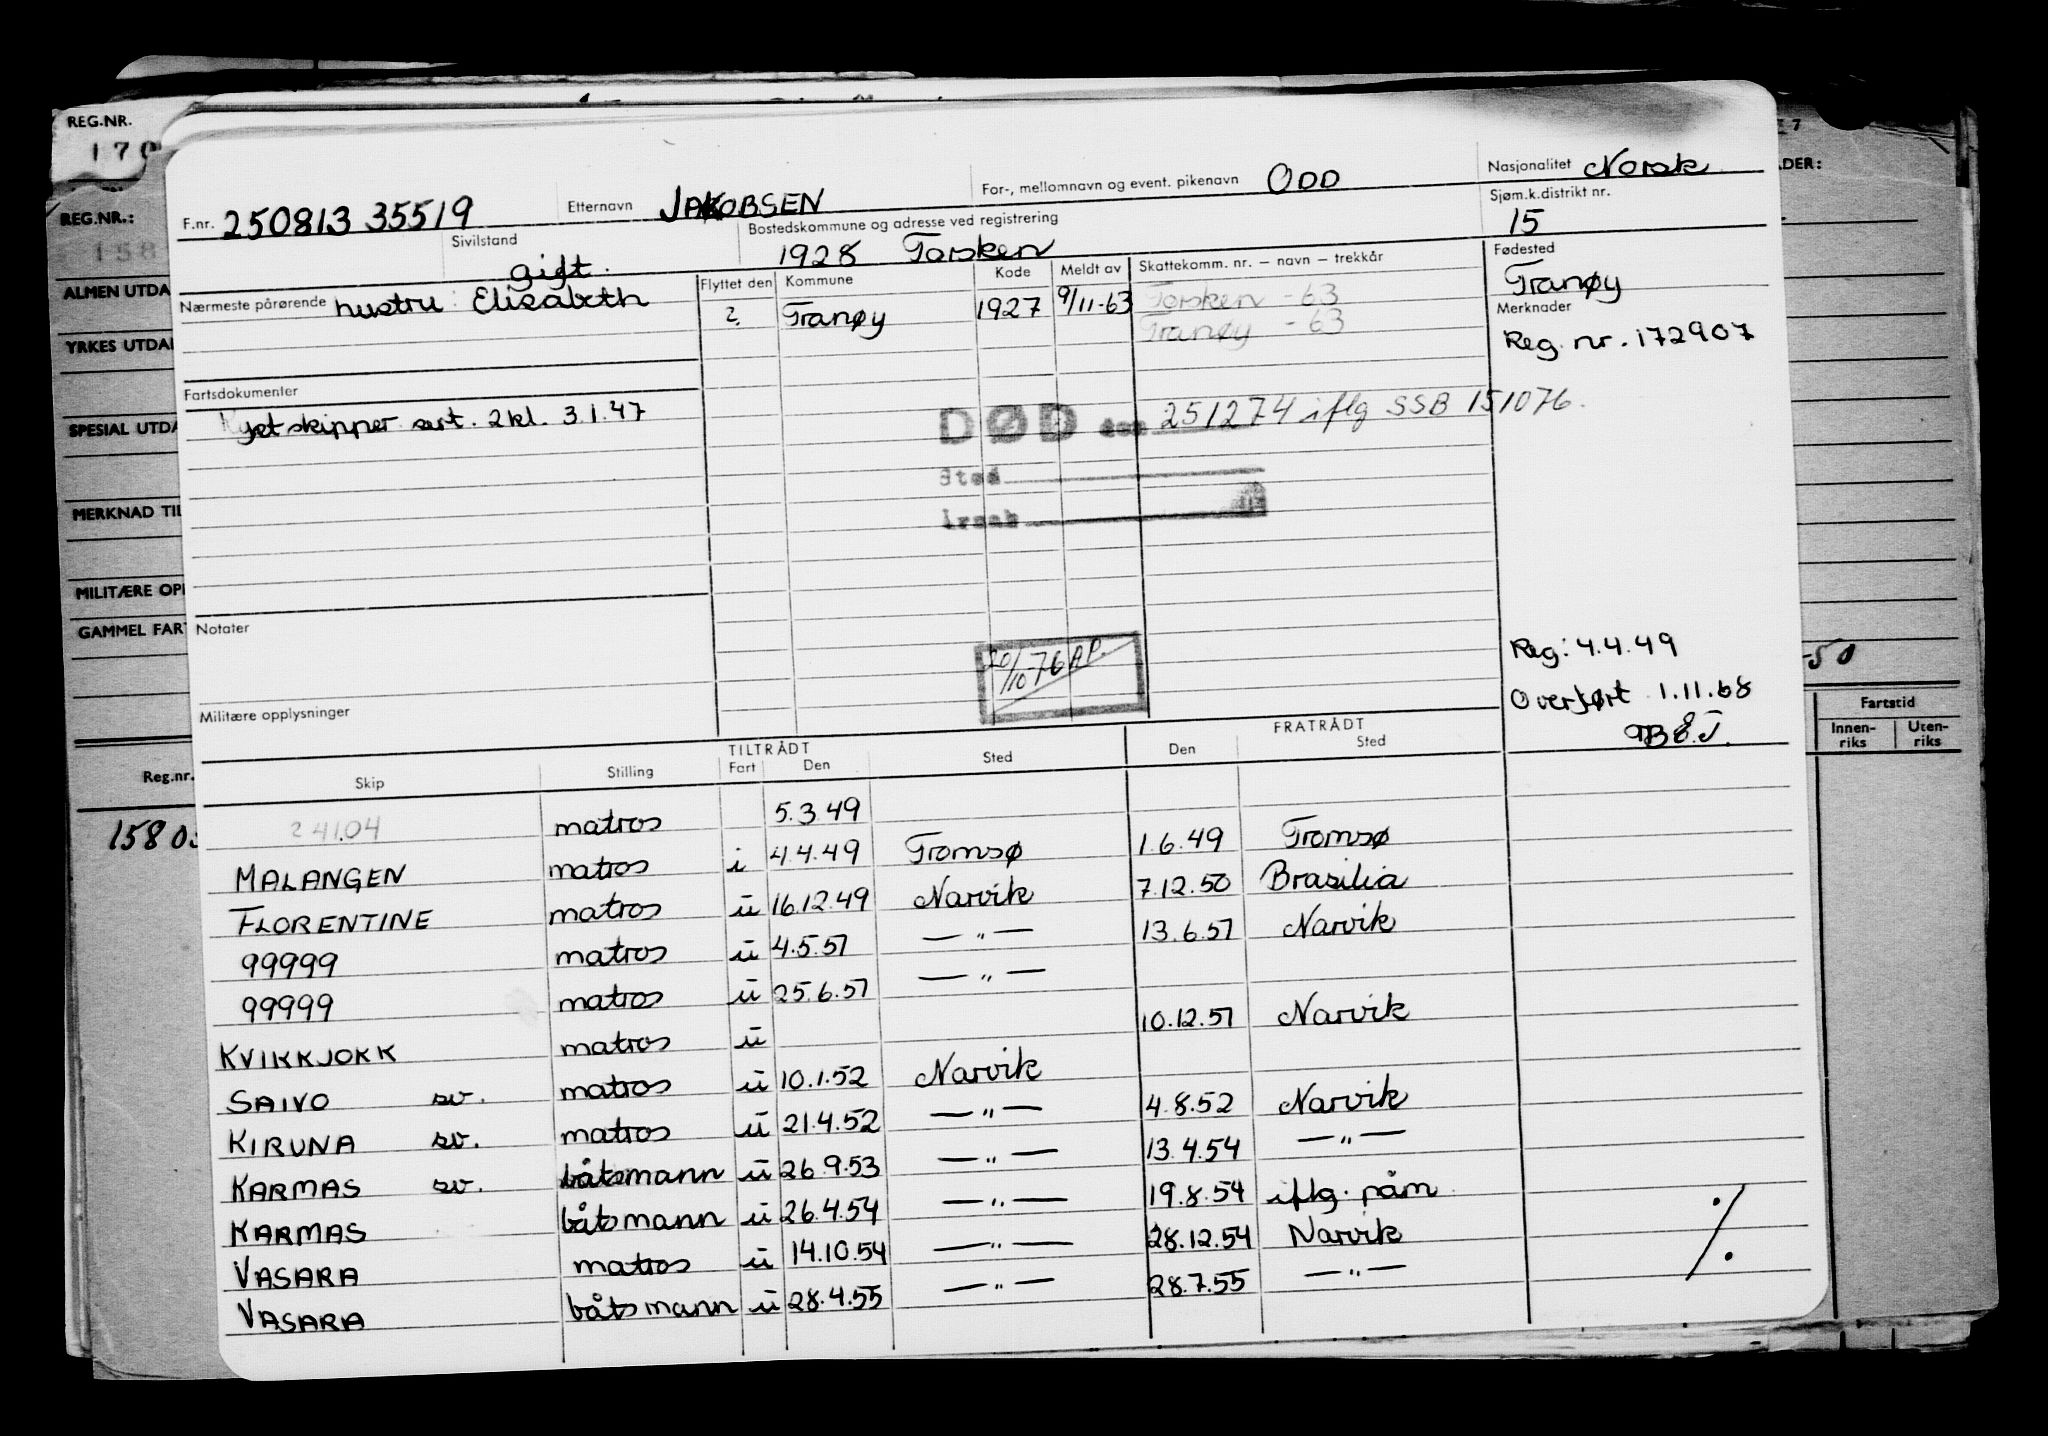 REG.NR.
170
REG.NR.:
158
ALMEN UTDA
YRKES UTDA
SPESIAL UTDA
MERKNAD TIL
MILITÆRE OPP
GAMMEL FAR
Reg.nr.
7
DER:
-50
Fartstid
Innen-riks Uten-riks
F.nr. 250813 35519 Etternavn JAKOBSEN For-, mellomnavn og event. pikenavn ODD Nasjonalitet Norsk
Sivilstand gift. Bostedskommune og adresse ved registrering 1928 Torsken Sjøm.k.distrikt nr. 15
Nærmeste pårørende hustru: Elisabeth Flyttet den Kommune Kode Meldt av Skattekomm. nr. – navn – trekkår Fødested Tranøy
? Tranøy 1927 9/11-63 Torsken - 63
Tranøy - 63
Merknader
Reg. nr. 172907
Fartsdokumenter
Kystskipper sert. 2 kl. 3.1.47
DØD den 251274 iflg SSB 151076.
Sted
Årsak
Notater
20/10-76 AP.
Reg: 4.4.49
Overført 1.11.68
Militære opplysninger
TILTRÅDT FRATRÅDT
Skip Stilling Fart Den Sted Den Sted
24104 matros 5.3.49
MALANGEN matros i 4.4.49 Tromsø 1.6.49 Tromsø
FLORENTINE matros u 16.12.49 Narvik 7.12.50 Brasilia
99999 matros u 4.5.51 — " — 13.6.51 Narvik
99999 matros u 25.6.51 — " —
KVIKKJOKK matros u 10.12.51 Narvik
SAIVO sv. matros u 10.1.52 Narvik
KIRUNA sv. matros u 21.4.52 — " — 4.8.52 Narvik
KARMAS sv. båtsmann u 26.9.53 — " — 13.4.54 — " —
KARMAS båtsmann u 26.4.54 — " — 19.8.54 iflg. påm
VASARA matros u 14.10.54 — " — 28.12.54 Narvik
VASARA båtsmann u 28.4.55 — " — 28.7.55 — " —
./.